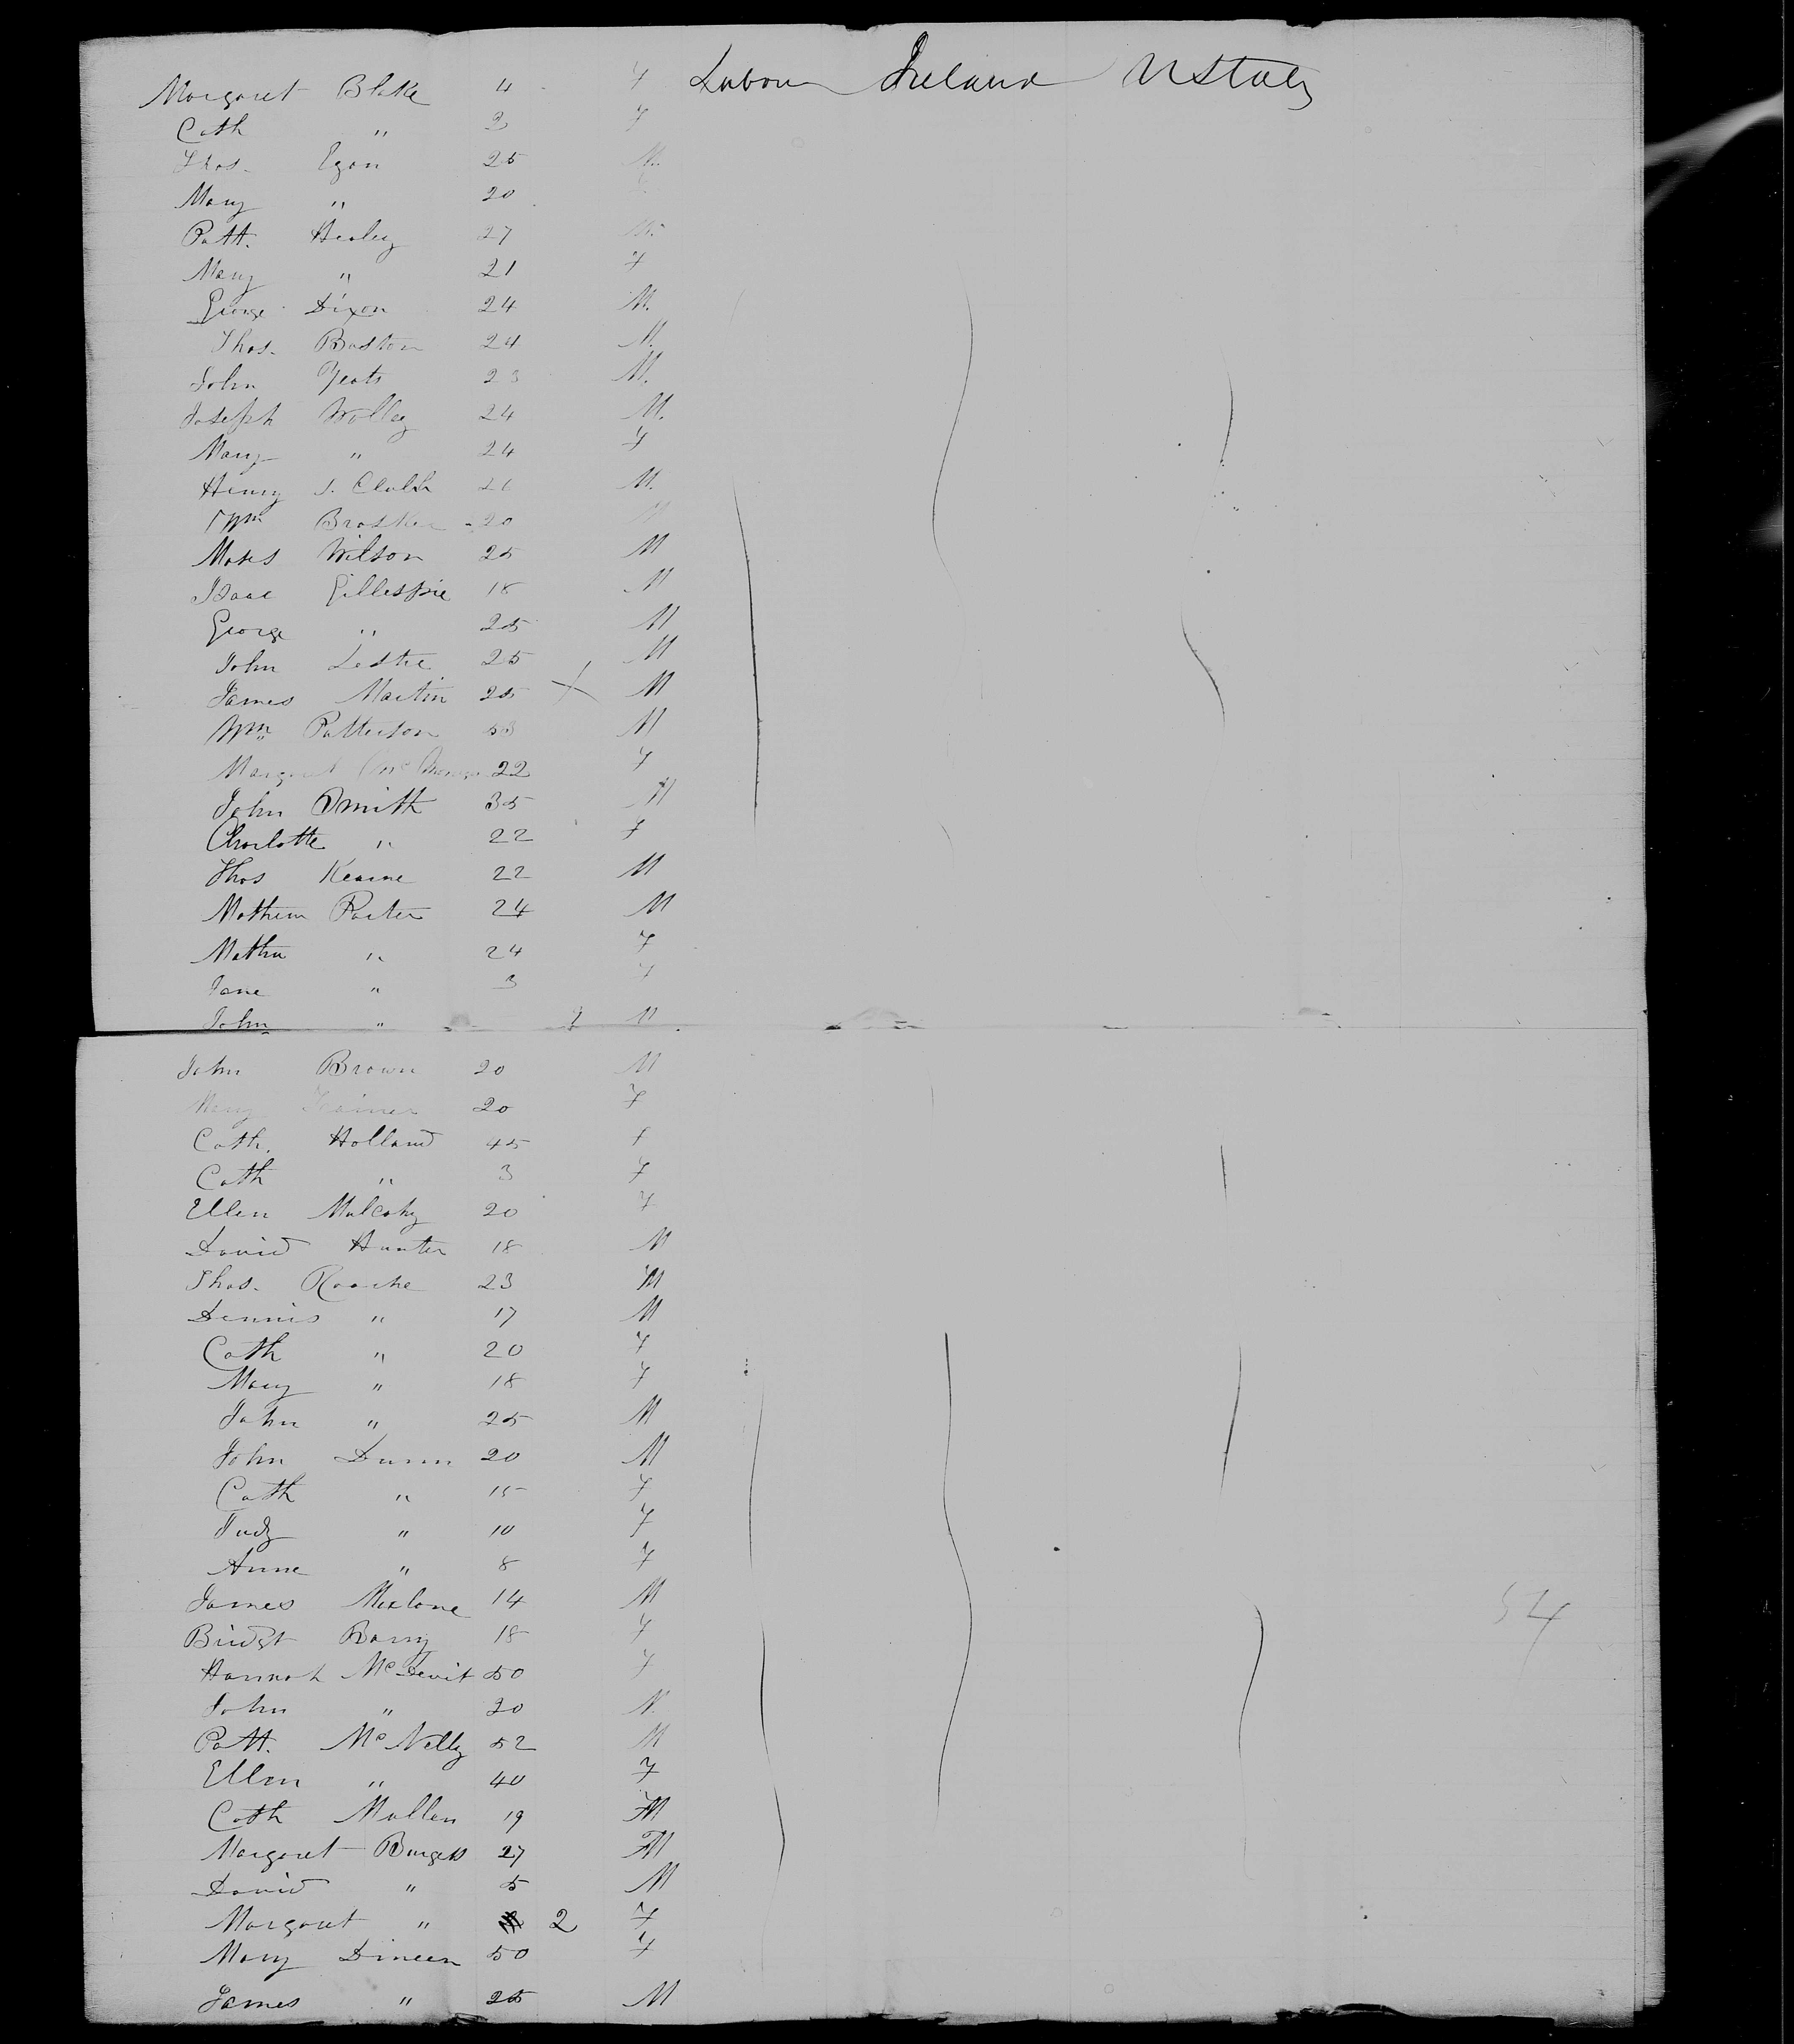 Margaret Blake 4 F Labour Ireland U States
Cath " 2 F
Thos. Egan 25 M.
Mary " 20
Patt. Healey 27 M.
Mary " 21 F
George Dixon 24 M.
Thos. Baston 24 M.
John Yeats 23 M.
Joseph Wolley 24 M.
Mary " 24 F
Henry J. 26 M.
Wm 20 M
Moses Wilson 25 M
Isaac Gillespie 18 M
George " 25 M
John Leslie 25 M
James Martin 25 X M
Wm Patterson 53 M
Margaret 22 F
John Smith 35 M
Charlotte " 22 F
Thos Kearne 22 M
Mathew Porter 24 M
" 24 F
Jane " 3 F
John " M
John Brown 20 M
Mary 20 F
Cath. Holland 45 F
Cath " 3 F
Ellen Mulcahy 20 F
David Hunter 18 M
Thos. Roache 23 M
Dennis " 17 M
Cath " 20 F
Mary " 18 F
John " 25 M
John Dunn 20 M
Cath " 15 F
Judy " 10 F
Anne " 8 F
James 14 M
Bridgt Barry 18 F
Hannah McDevit 50 F
John " 20 M.
Patt. McNelly 52 M
Ellen " 40 F
Cath Mullen 19
Margaret Burgess 27
David " 5 M
Margaret " 2 F
Mary Dineen 50 F
James " 25 M
54